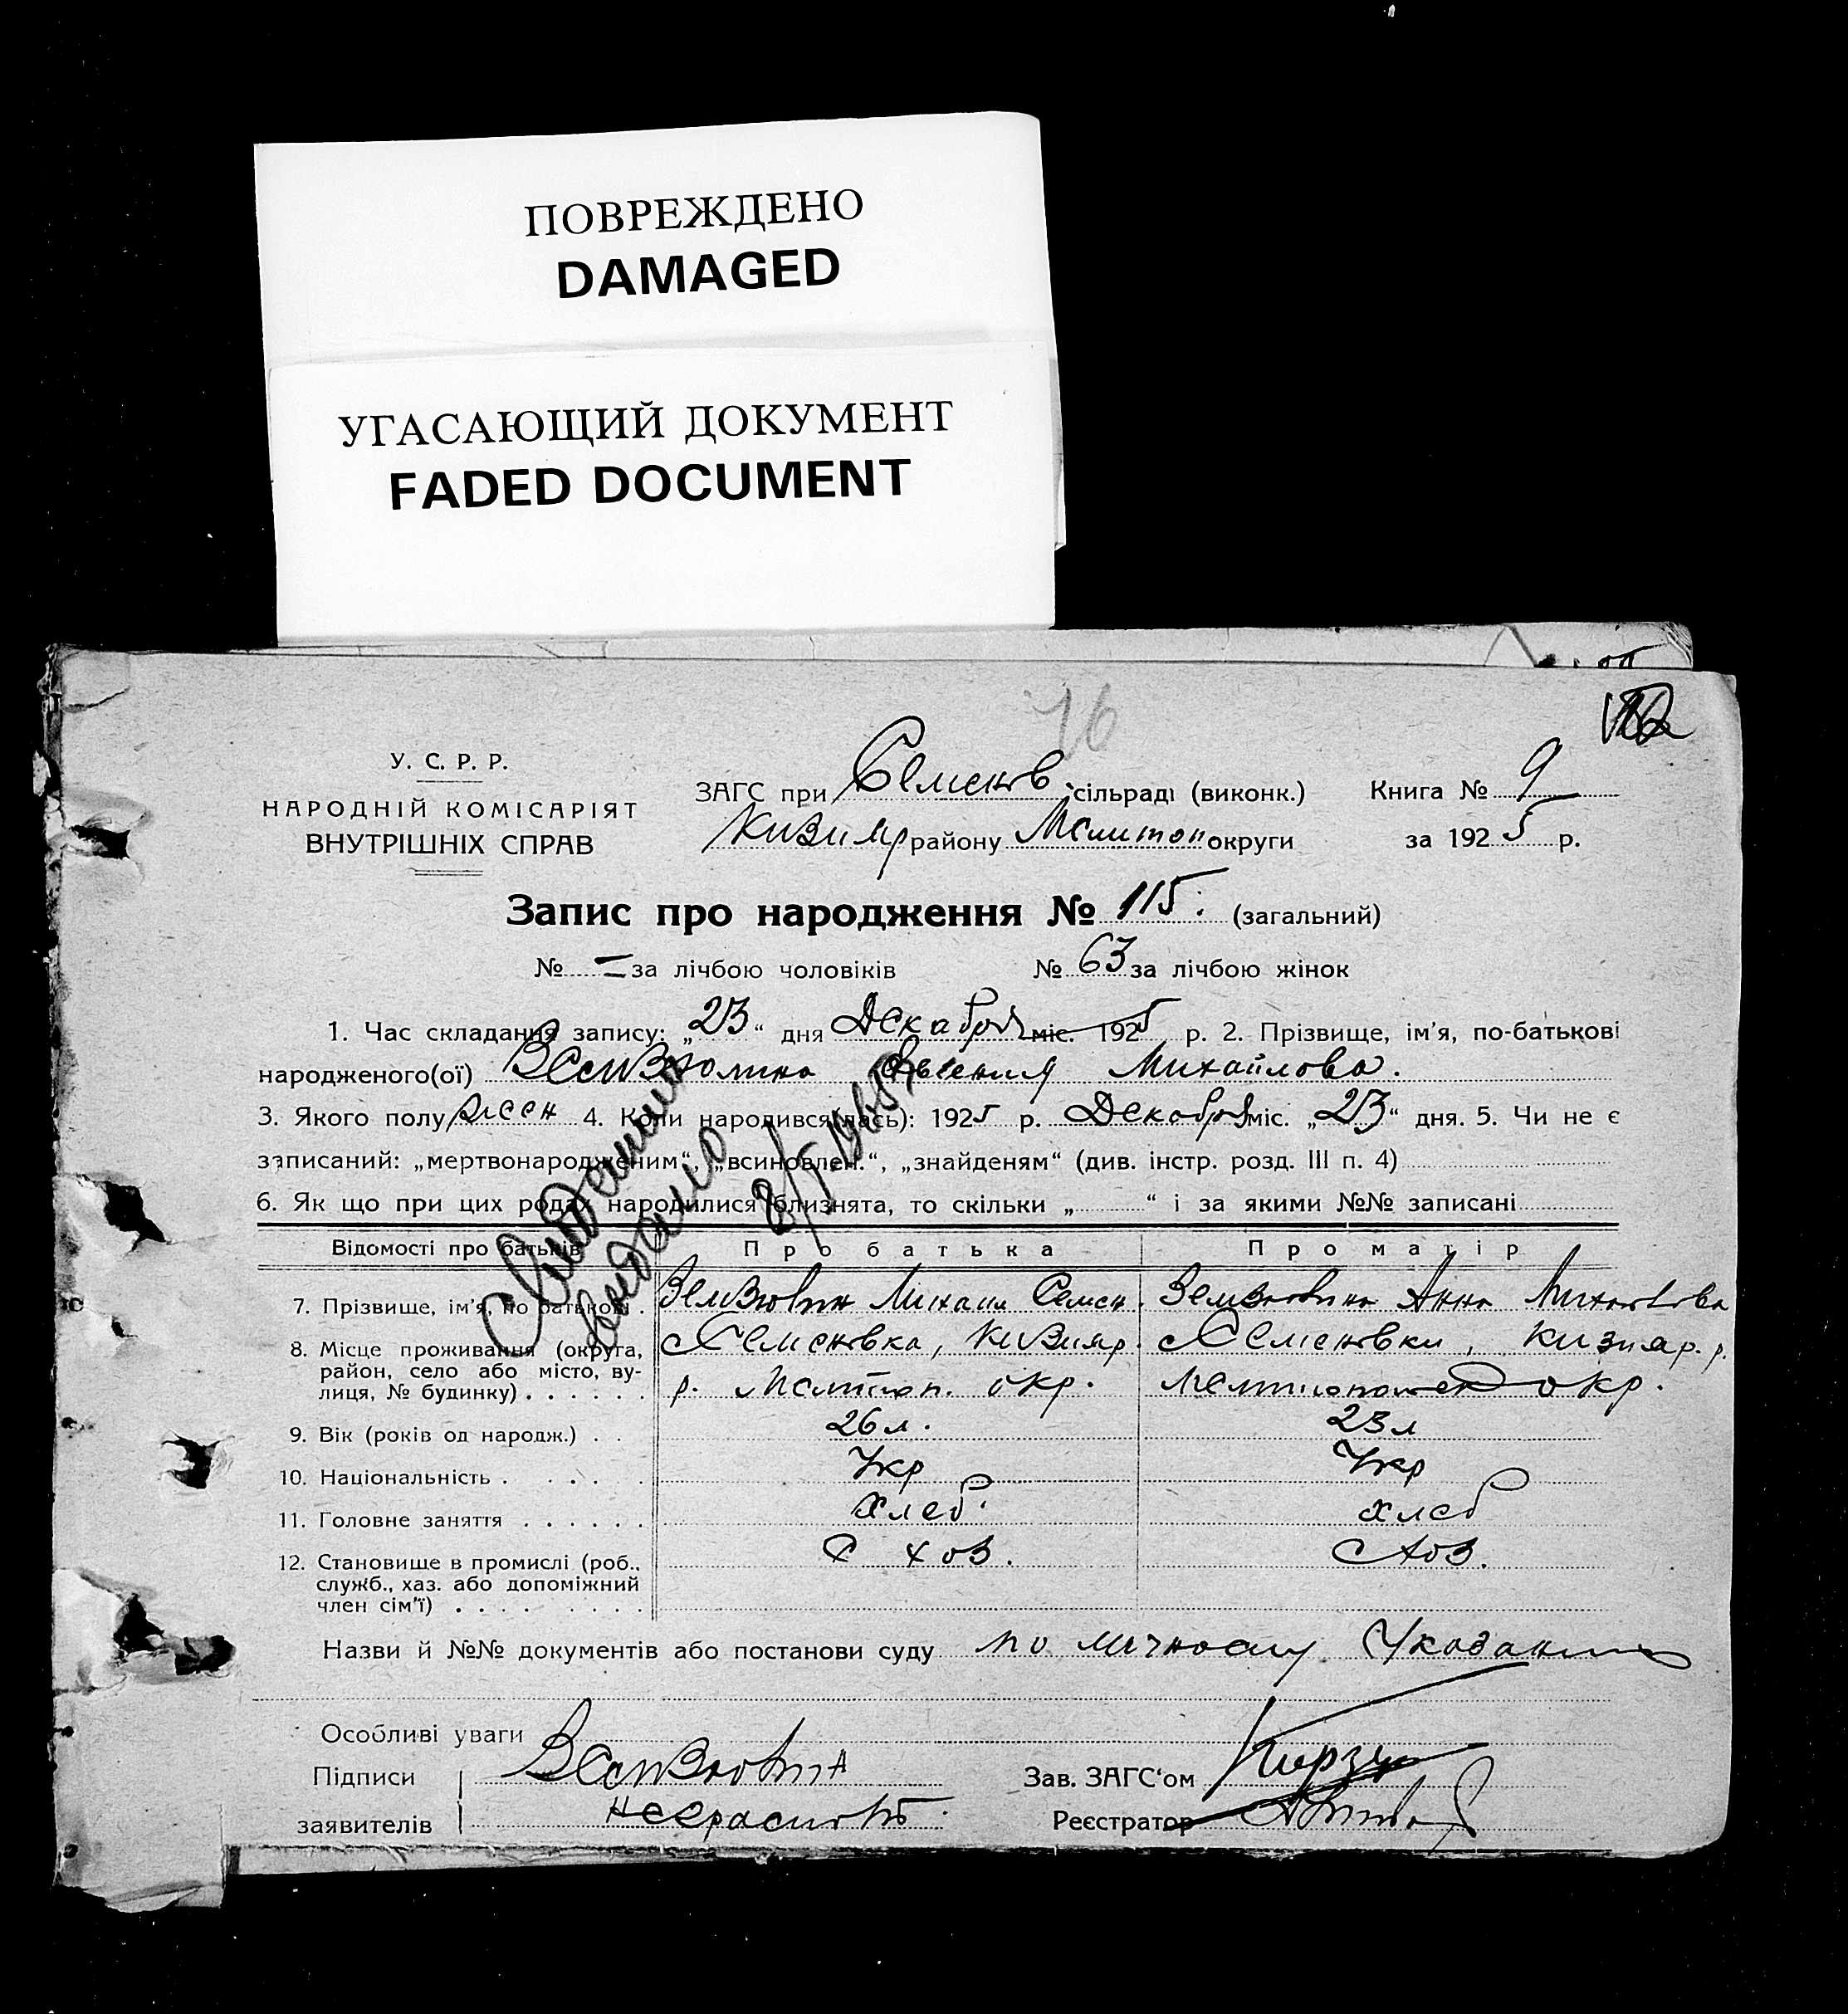 ПОВРЕЖДЕНО
DAMAGED
УГАСАЮЩИЙ ДОКУМЕНТ
FADED DOCUMENT
76
У. С. Р. Р.
НАРОДНІЙ КОМІСАРІЯТ
ВНУТРІШНІХ СПРАВ
ЗАГС при Семенов сільраді (виконк.)
Кизияр району Мелитоп округи
Книга № 9
за 1925 р.
Запис про народження № 115. (загальний)
№ – за лічбою чоловіків № 63 за лічбою жінок
1. Час складання запису: „23“ дня Декабря міс. 1925 р. 2. Прізвище, ім'я, по-батькові
народженого(ої) Михайлова.
3. Якого полу женск 4. Коли народився(лась): 1925 р. Декабря міс. „23“ дня. 5. Чи не є
записаний: „мертвонародженим“, „всиновлен.“, „знайденям“ (див. інстр. розд. III п. 4)
6. Як що при цих родах народилися близнята, то скільки „ “ і за якими №№ записані
Відомості про батьків Про батька Про матір
7. Прізвище, ім'я, по батькові . Михаил Семен. Анна
8. Місце проживання (округа, Семеновка, Кизияр. Семеновки, Кизияр. р.
район, село або місто, ву- р. Мелитоп. окр. окр.
лиця, № будинку) . . . . . .
9. Вік (років од народж.) . . 26 л. 23 л
10. Національність . . . . . Укр Укр
11. Головне заняття . . . . . . Хлеб. хлеб
12. Становище в промислі (роб., С хоз. С хоз.
служб., хаз. або допоміжний
член сім'ї) . . . . . . . .
Назви й №№ документів або постанови суду по личному Указанию
Особливі уваги
Підписи
заявителів
Зав. ЗАГС'ом
Реєстратор